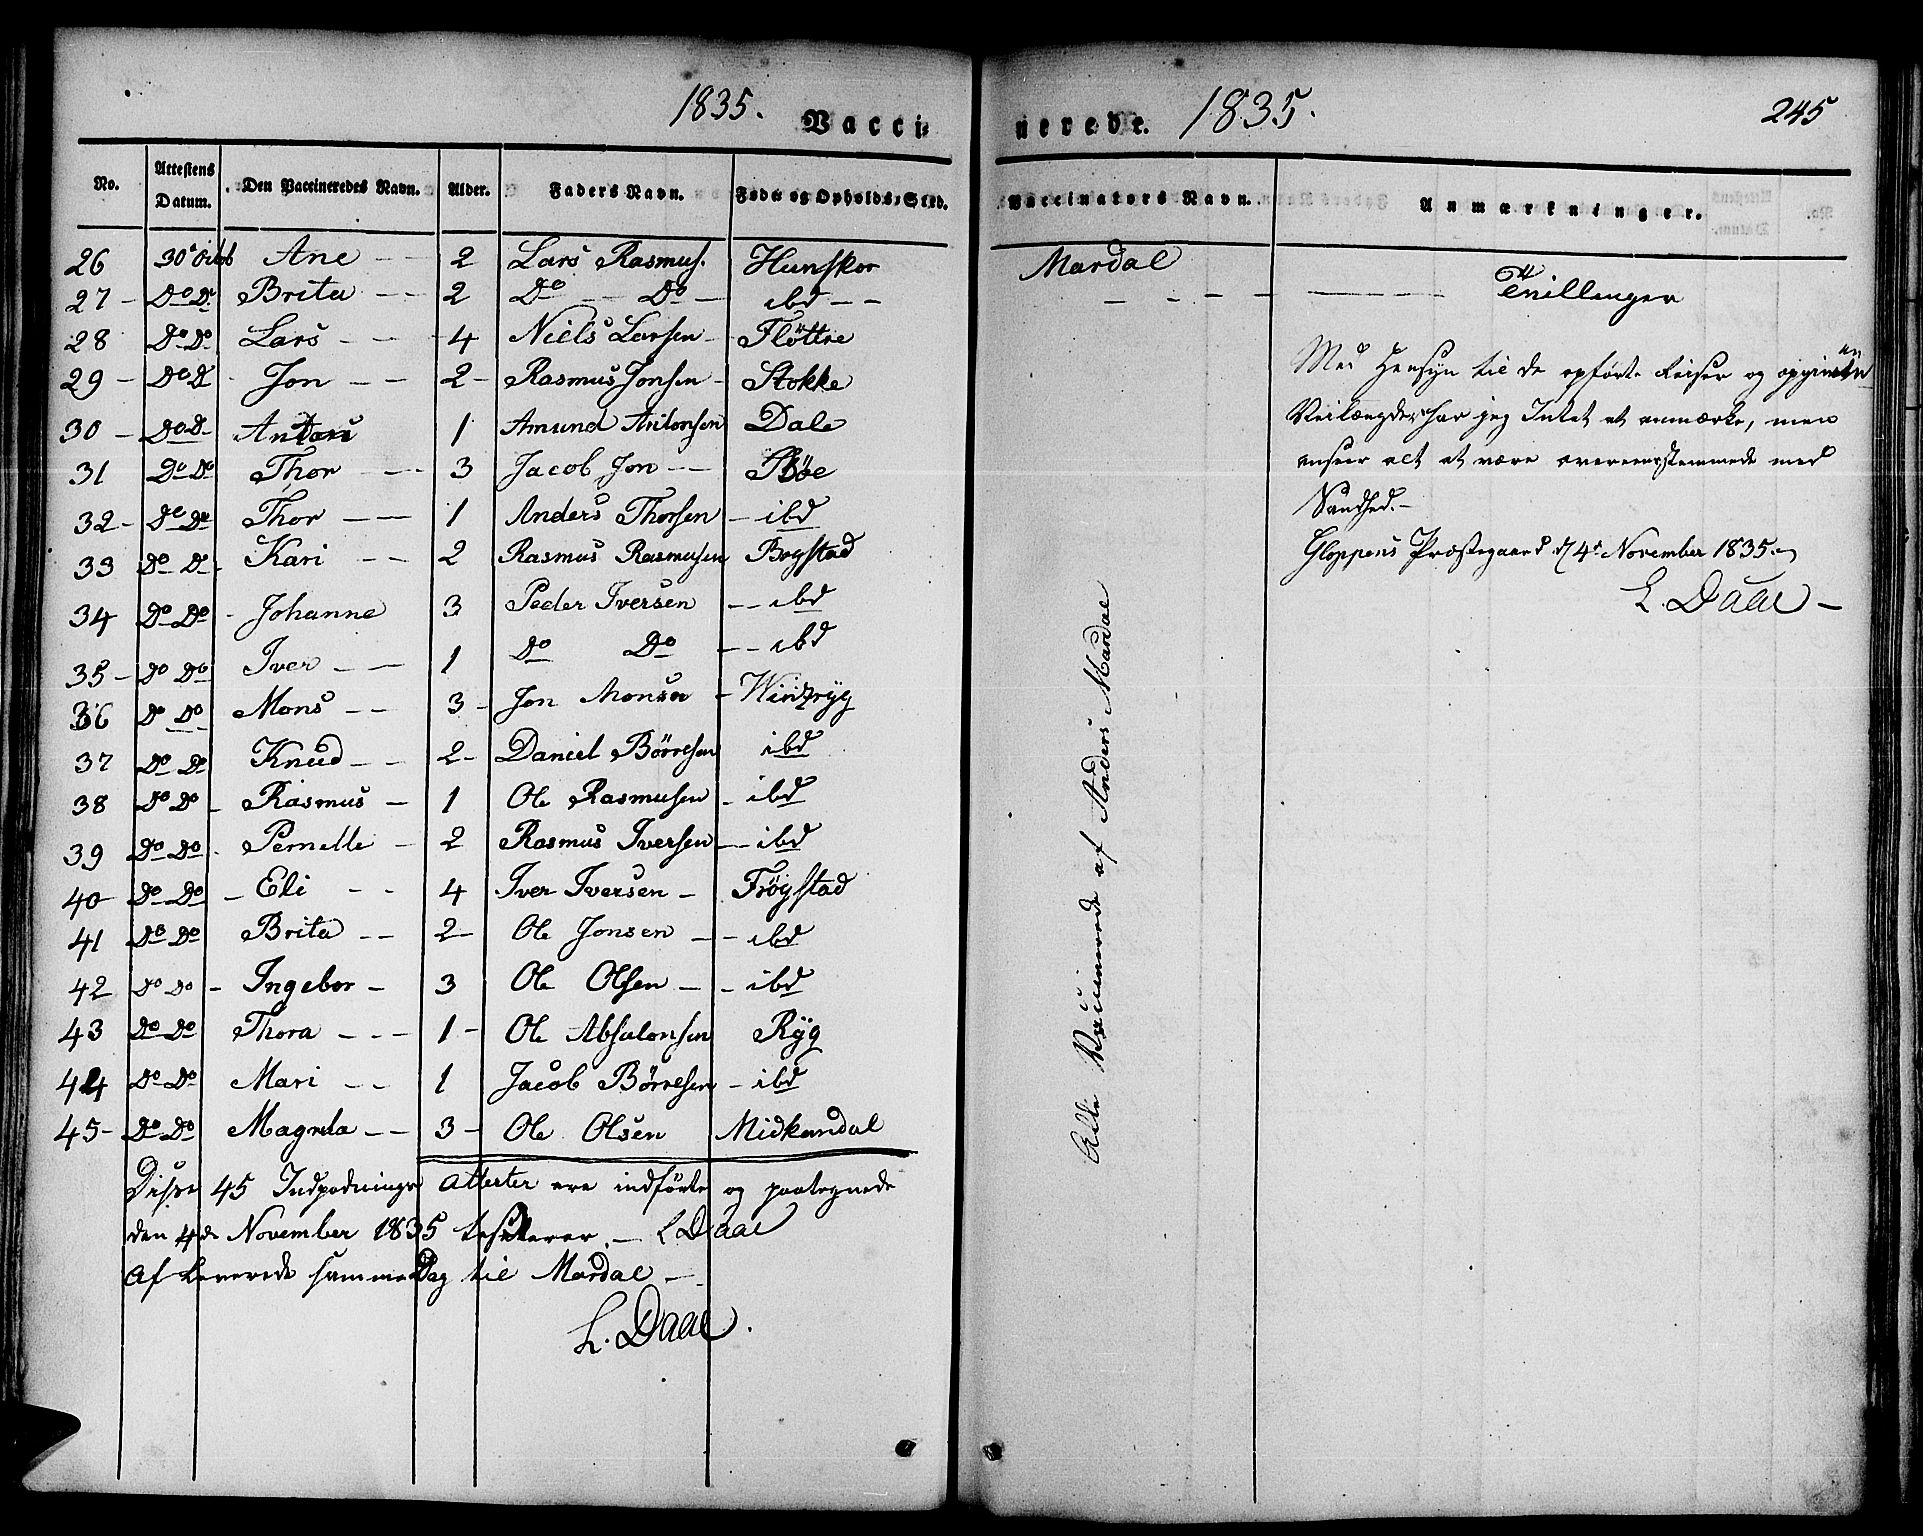 1835. Vacci-
No. Attestens Datum. Den Vaccineredes Navn. Alder. Faders Navn. Føde og Opholds-Sted.
26 30te Octob Ane - - 2 Lars Rasmus. Hunskor
27 - Do Do Brita - - 2 Do - Do - ibd - -
28 Do Do Lars - - - 4 Niels Larsen - Fløttre
29 - Do Do - Jon - - 2 - Rasmus Jonsen - Stokke
30 - Do Do - Antoni 1 Amund Antonsen Dale
31 Do Do Thor - - 3 Jacob Jon - - Bøe
32 - Do Do Thor - - 1 Anders Thorsen - ibd
33 Do Do - Kari - - 2 Rasmus Rasmusen Frøystad
34 Do Do - Johanne 3 Peder Iversen - - ibd
35 - Do Do Iver - - 1 Do Do - - ibd
36 Do Do Mons - - 3 - Jon Monsen - Windryg
37 Do Do Knud - - 2 - Daniel Børresen ibd
38 Do Do - Rasmus - 1 Ole Rasmusen - ibd
39 Do Do - Pernelle - 2 Rasmus Iversen - - ibd
40 - Do Do - Eli - - 4 Iver Iversen - Frøystad
41 Do Do Brita - - 2 - Ole Jonsen - - ibd
42 Do Do - Ingebor - 3 Ole Olsen - - ibd
43 Do Do Thora - - - 1 - Ole Absalonsen Ryg
44 Do Do Mari - - 1 Jacob Børresen - ibd
45 - Do Do Magnela - - 3 - Ole Olsen Midkandal
Disse 45 Indpodnings Attester ere indførte og paategnede
den 4de November 1835 testerer. - L Daae
Afleverede samme Dag til Mardal -
L. Daae.
nerede. 1835. 245
Vaccinators Navn. Anmærkninger.
Mardal
- - - - - Tvillinger
Med Hensyn til de opførte Reiser og opgivne
Veilængder har jeg Intet at anmærke, men
anseer alt at være overeensstemmede med
Sandhed. -
Gloppens Præstegaard d 4de November 1835.
L. Daae -
Alle Vaccinerede af Anders Mardal